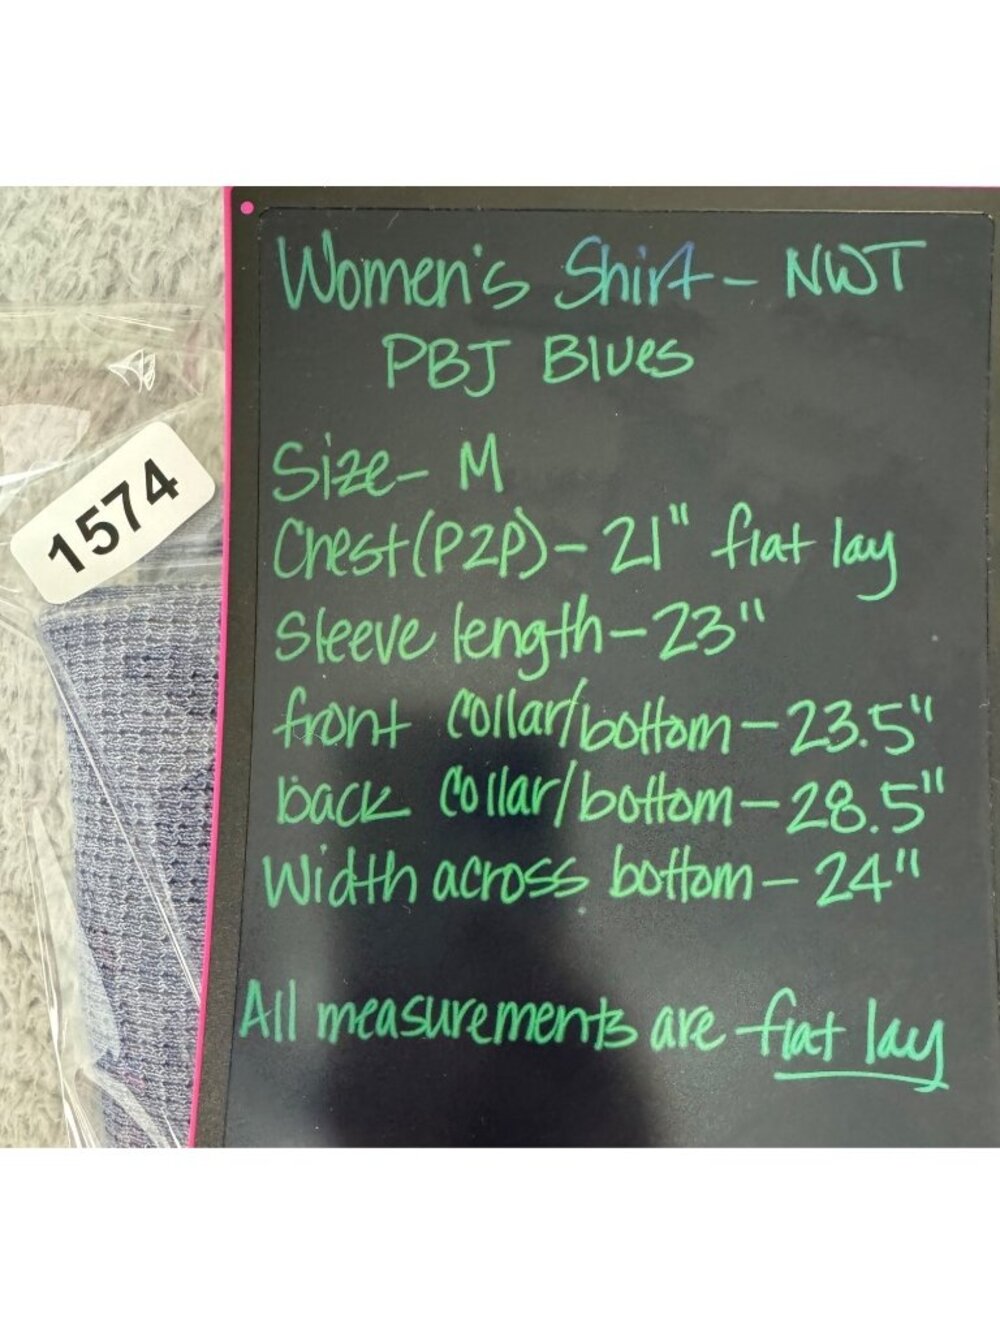 Women's Shirt - NWT
PBJ Blues
Size - M
Chest (P2P) - 21" flat lay
Sleeve length - 23"
front collar/bottom - 23.5"
back collar/bottom - 28.5"
Width across bottom - 24"
All measurements are flat lay
1574